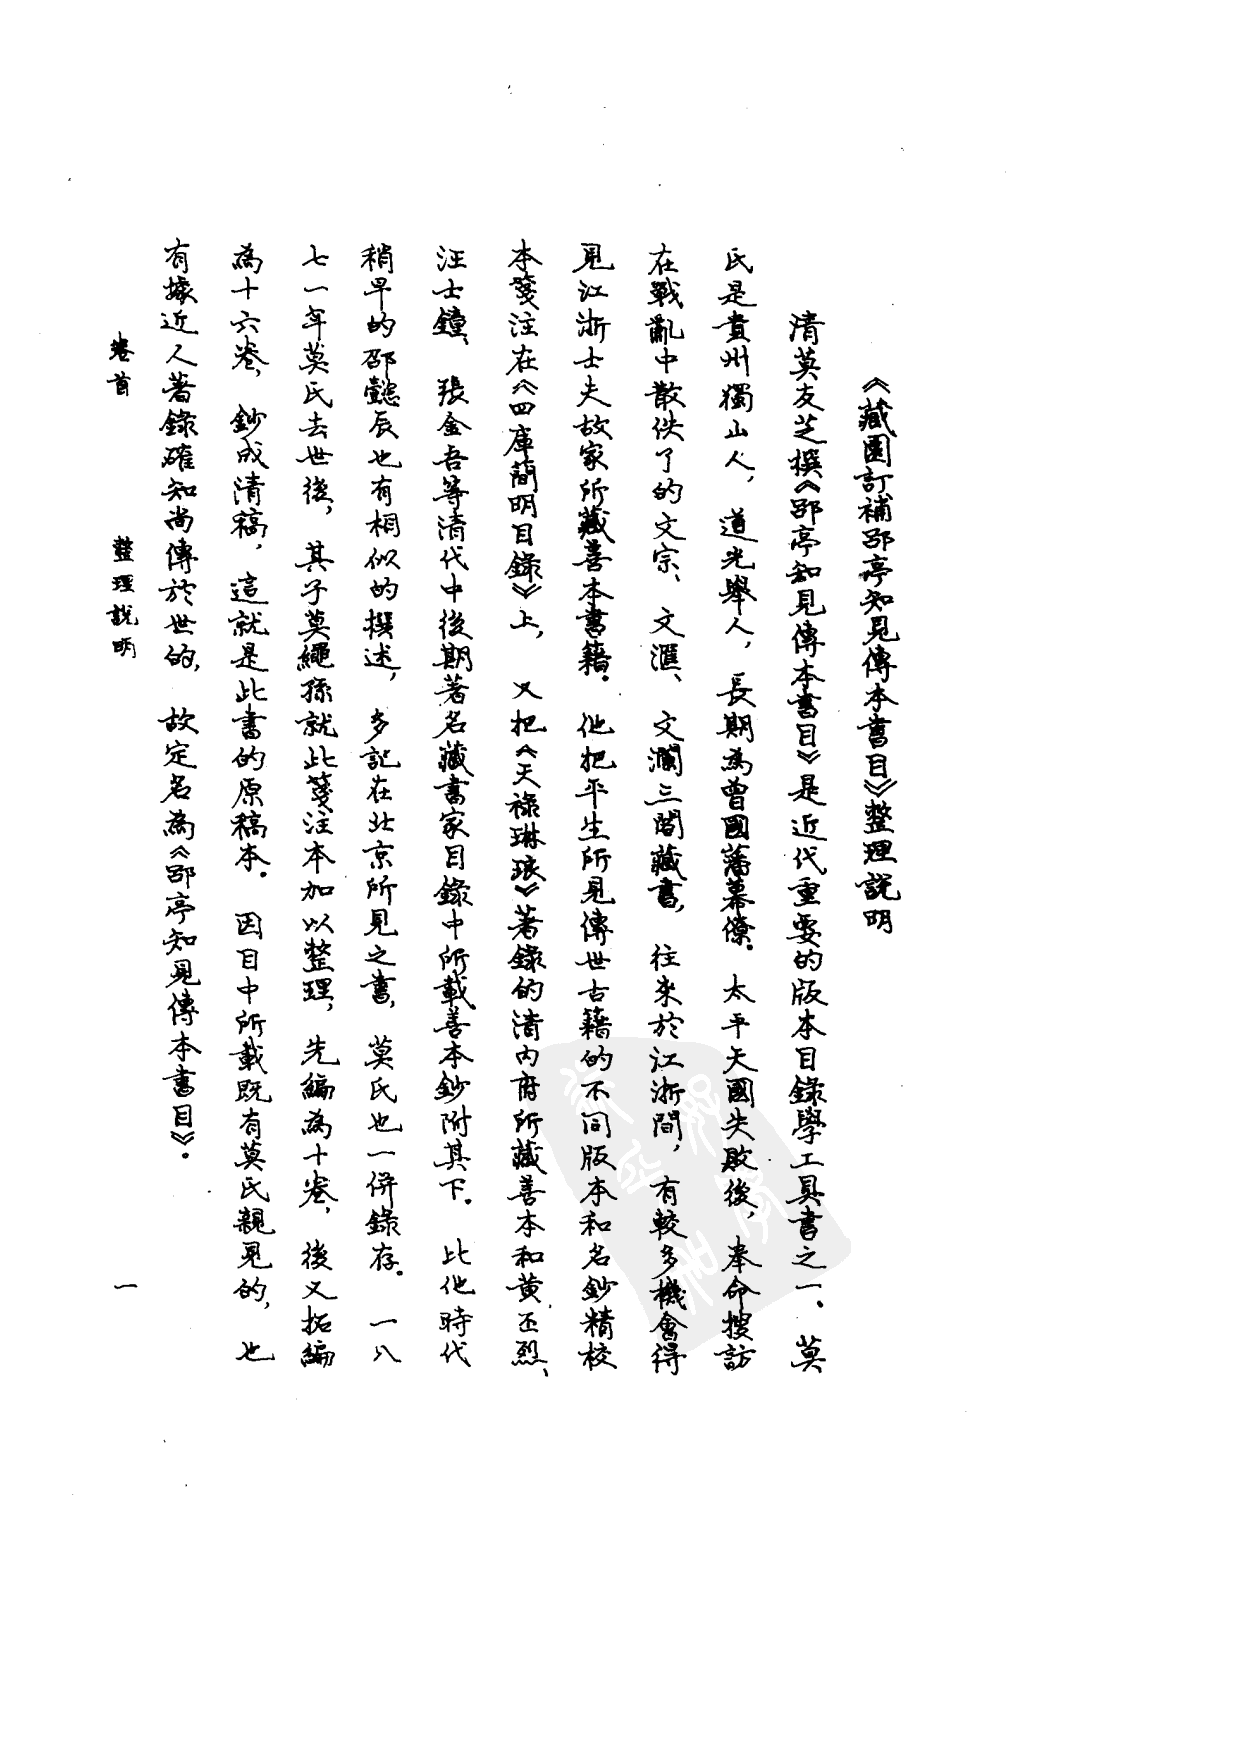 《藏園訂補郘亭知見傳本書目》整理説明
清莫友芝撰《郘亭知見傳本書目》是近代重要的版本目錄學工具書之一。莫
氏是貴州獨山人，道光舉人，長期為曾國藩幕僚。太平天國失敗後，奉命搜訪
在戰亂中散佚了的文宗、文滙、文瀾三閣藏書，往來於江浙間，有較多機會得
見江浙士夫故家所藏善本書籍。他把平生所見傳世古籍的不同版本和名鈔精校
本箋注在《四庫簡明目錄》上，又把《天祿琳琅》著錄的清内府所藏善本和黃丕烈、
汪士鐘、張金吾等清代中後期著名藏書家目錄中所載善本鈔附其下。比他時代
稍早的邵懿辰也有相似的撰述，多記在北京所見之書，莫氏也一併錄存。一八
七一年莫氏去世後，其子莫繩孫就此箋注本加以整理，先編為十卷，後又拓編
為十六卷，鈔成清稿，這就是此書的原稿本。因目中所載既有莫氏親見的，也
有據近人著錄確知尚傳於世的，故定名為《郘亭知見傳本書目》。
卷首 整理説明 一